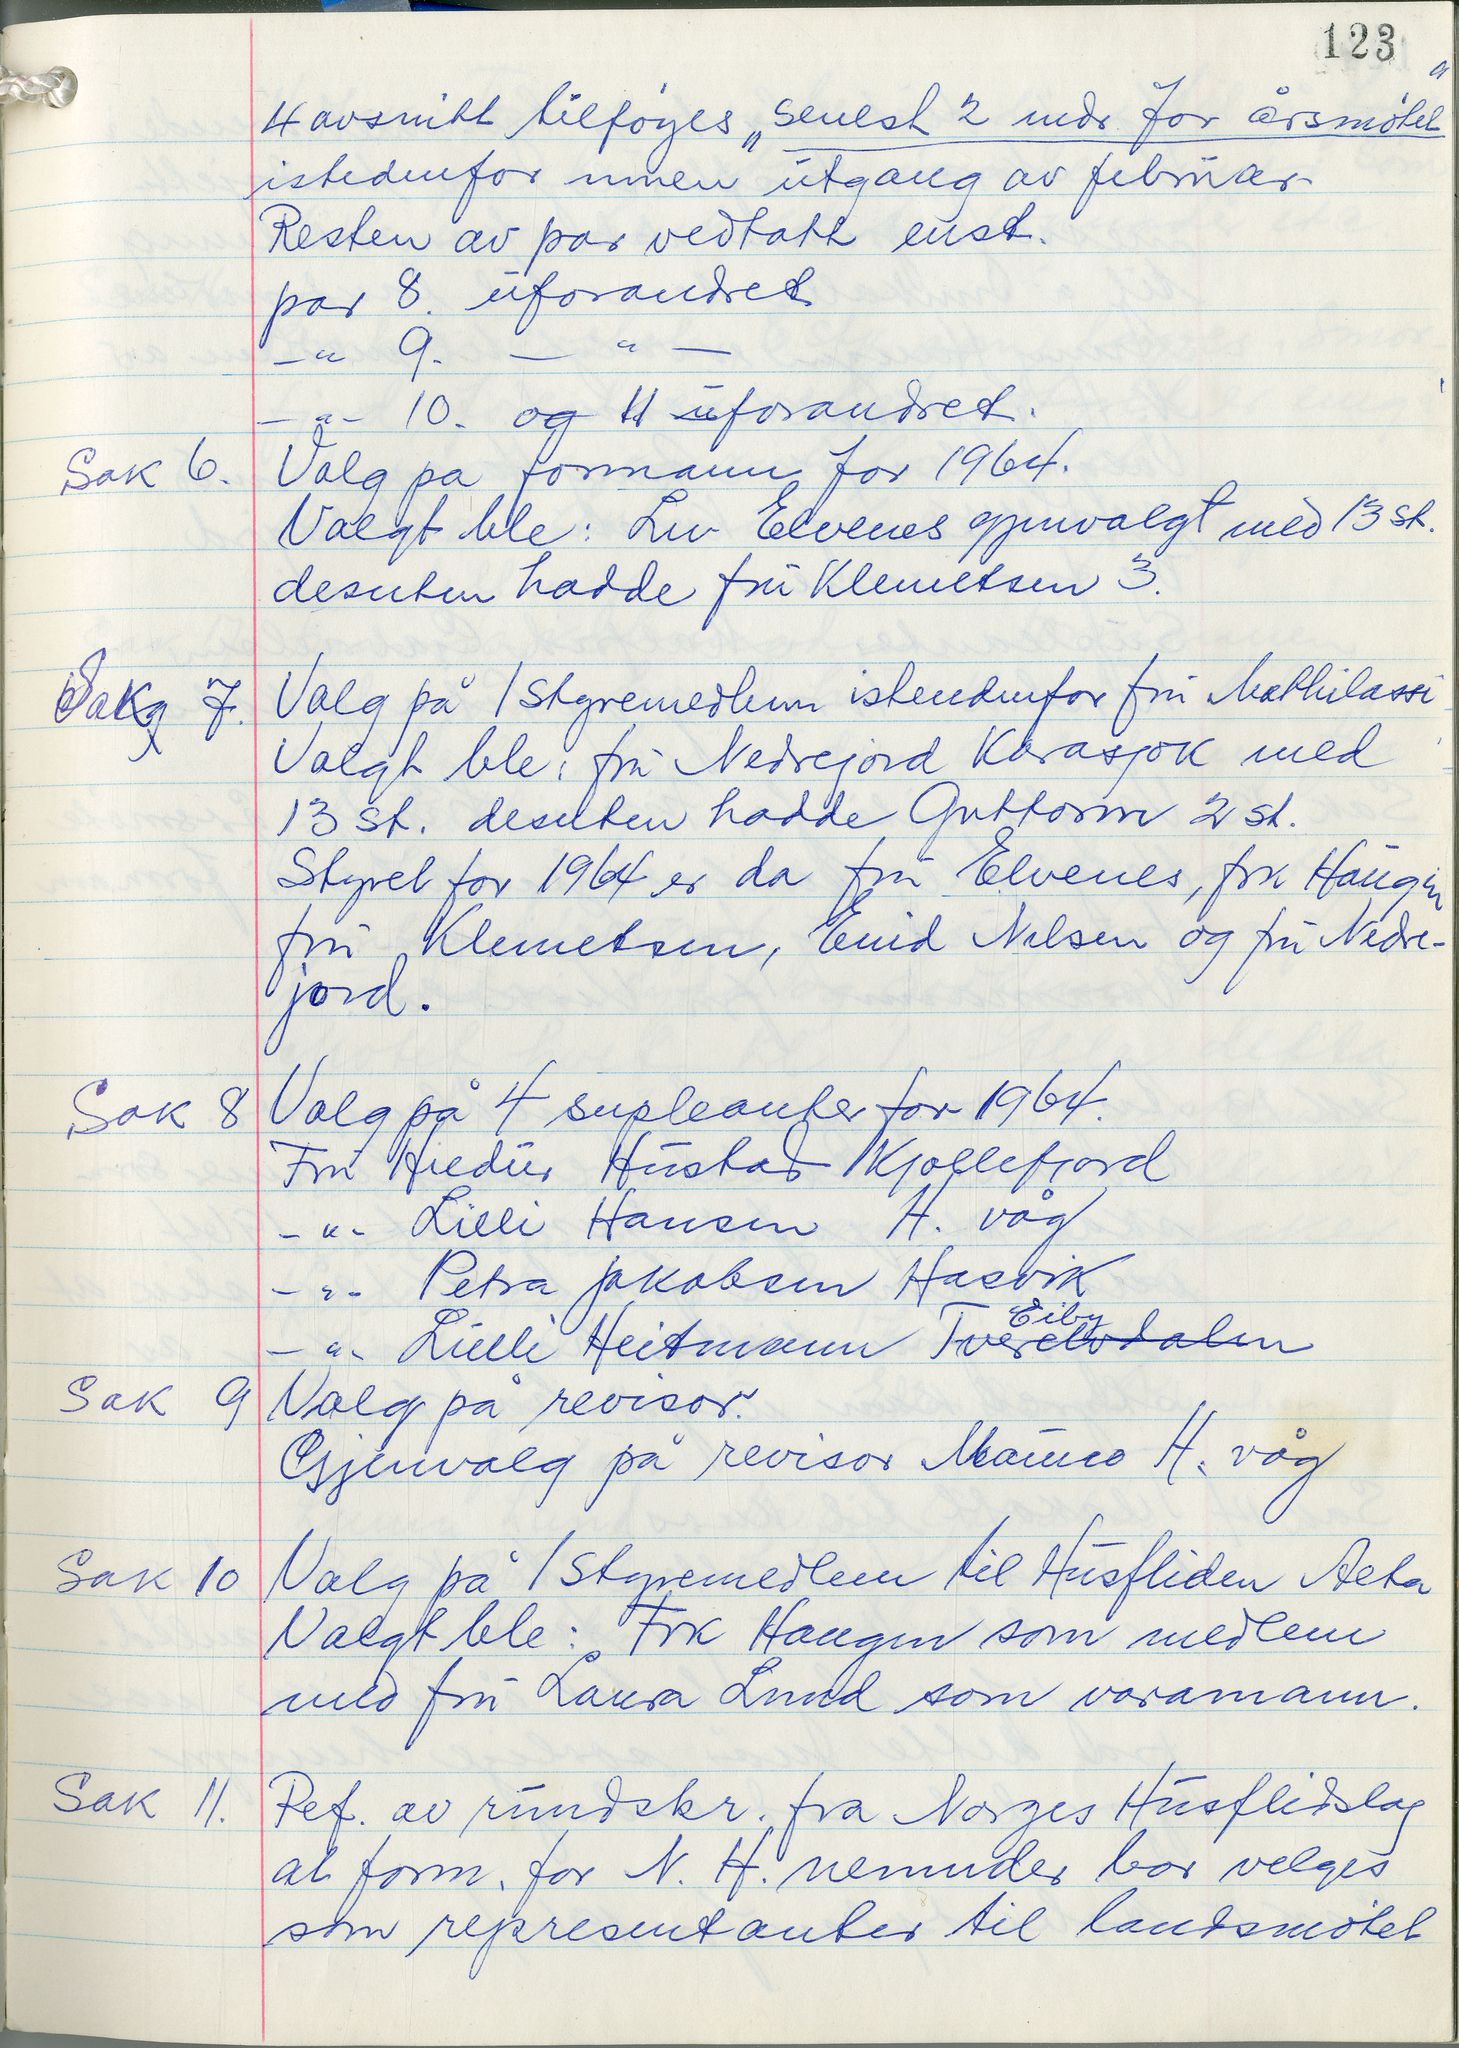 123
4 avsnitt tilføyes "senest 2 mdr før årsmøtet"
istedenfor innen utgang av februar
Resten av par vedtatt enst.
par 8. uforandret
-"- 9. - " -
-"- 10. og 11 uforandret.
Sak 6. Valg på formann for 1964.
Valgt ble: Liv Elvenes gjenvalgt med 13 st.
desuten hadde fru Klemetsen 3.
Sak 7. Valg på 1 styremedlem istendenfor fru Mathilassi
Valgt ble: fru Nedrejord Karasjok med
13 st. desuten hadde Guttorm 2 st.
Styret for 1964 er da fru Elvenes, frk Haugen
fru Klemetsen, Enid Nilsen og fru Nedre-
jord.
Sak 8 Valg på 4 supleanter for 1964.
Fru Hustad Kjøllefjord
-"- Lilli Hansen H. våg
-"- Petra Jakobsen Hasvik
-"- Lilli Heitmann Tverelvdalen Eiby
Sak 9 Valg på revisor.
Gjenvalg på revisor H. våg
Sak 10 Valg på 1 styremedlem til Husfliden Alta
Valgt ble: Frk Haugen som medlem
med fru Laura Lund som varamann.
Sak 11. Ref. av rundskr. fra Norges Husflidslag
at form. for N. H. nemnder bør velges
som representanter til landsmøtet